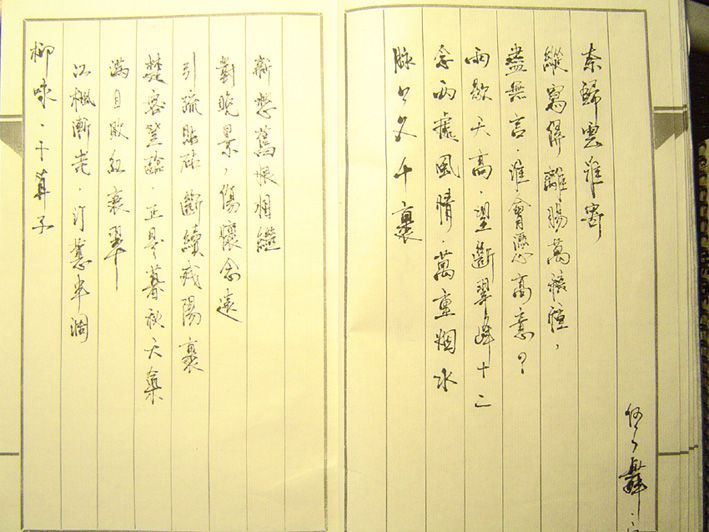 柳咏·卜算子
江楓漸老·汀蕙半凋
滿目敗紅衰翠
楚客登臨·正是暮秋天氣
引疏砧斷續残陽裏
對晚景,傷懷念遠
新愁舊恨相繼
脉々人千裏
念兩處風情·萬重烟水
雨歇天高·望斷翠峰十二
盡無言·誰會憑高意?
縱寫得離腸萬種,
奈歸雲誰寄